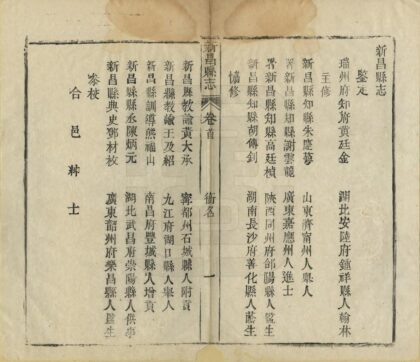 新昌縣志
鑒定
瑞州府知府黃廷金 湖北安陸府鍾祥縣人翰林
主修
新昌縣知縣朱慶萼 山東濟甯州人舉人
署新昌縣知縣謝雲龍 廣東嘉應州人進士
署新昌縣知縣高廷楨 陝西同州府郃陽縣人監生
新昌縣知縣胡傳釗 湖南長沙府善化縣人廕生
協修
新昌縣志 卷首 銜名 一
新昌縣教諭黃大承 甯都州石城縣人附貢
新昌縣教諭王及紹 九江府湖口縣人舉人
新昌縣訓導熊福山 南昌府豐城縣人增貢
新昌縣縣丞陳炳元 湖北武昌府崇陽縣人供事
新昌縣典史鄧材枚 廣東韶州府樂昌縣人監生
參校
合邑紳士